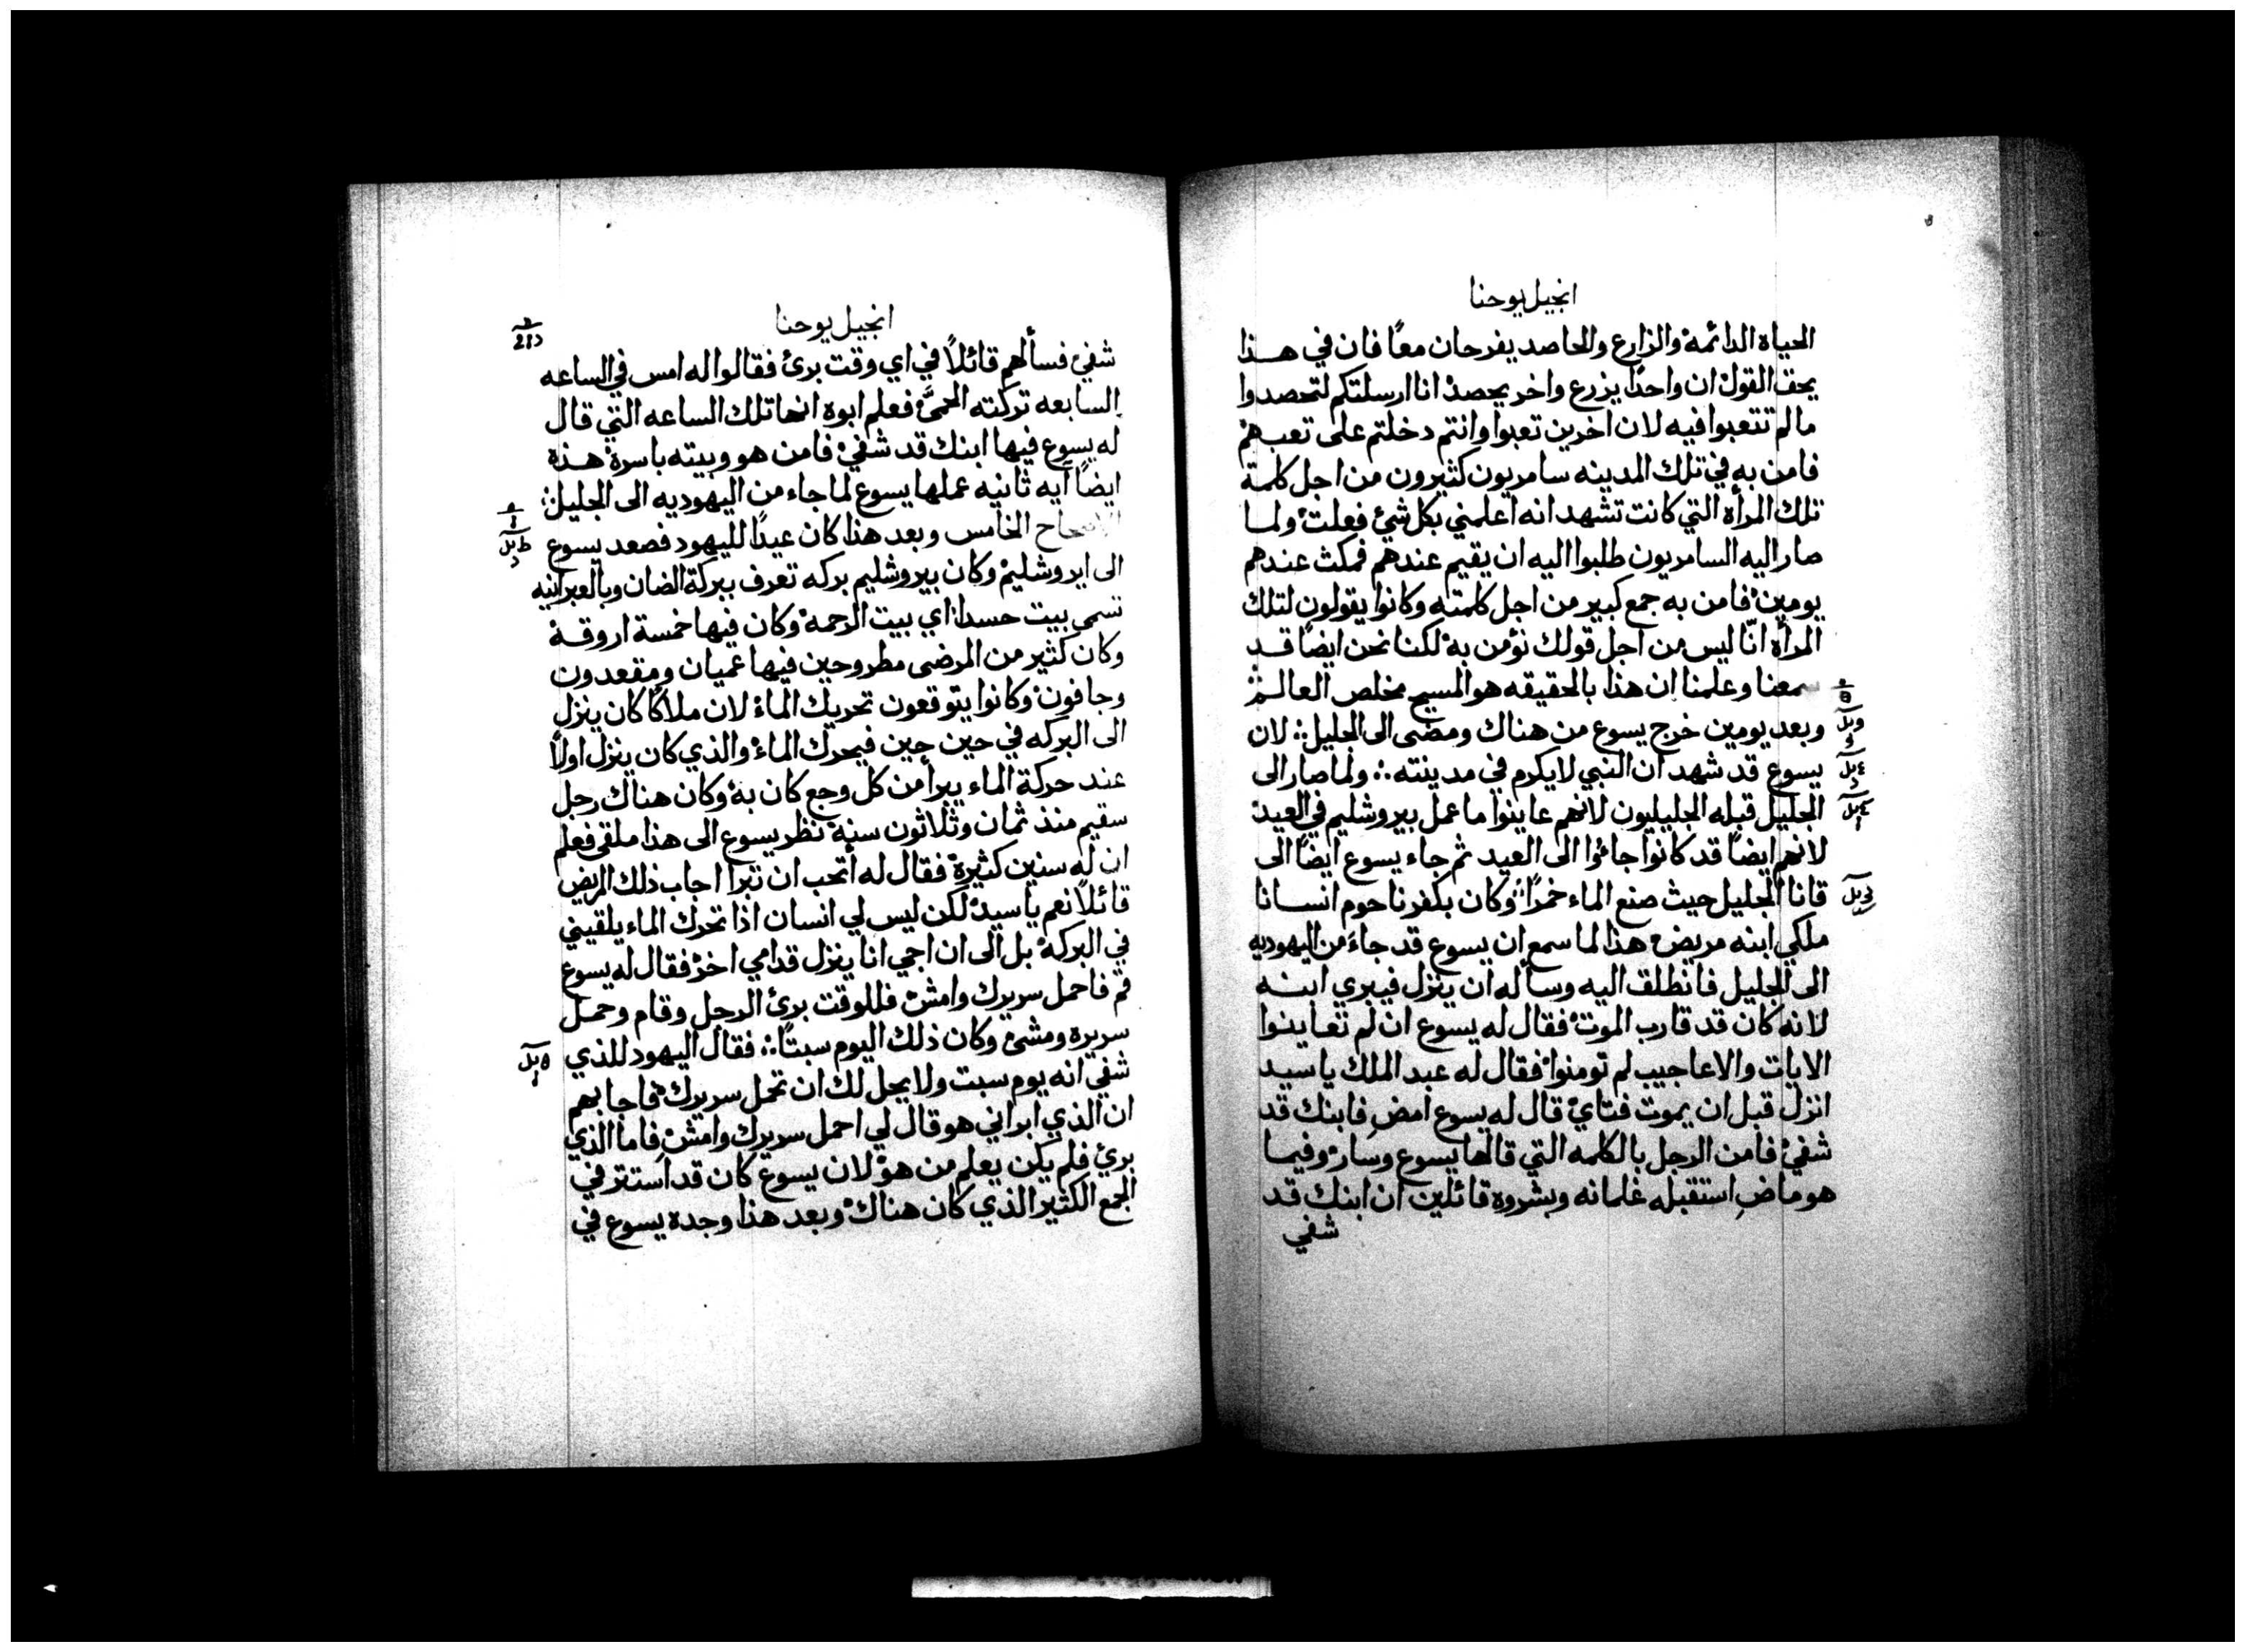 انجيل يوحنا
الحياة الدائمة والزارع والحاصد يفرحان معًا فان في هذا
يحق القول ان واحدًا يزرع واخر يحصد انا ارسلتكم لتحصدوا
ما لم تتعبوا فيه لان اخرين تعبوا وانتم دخلتم على تعبهم
فامن به في تلك المدينه سامريون كثيرون من اجل كلمة
تلك المرأة التي كانت تشهد انه اعلمني بكل شئ فعلت ولما
صار اليه السامريون طلبوا اليه ان يقيم عندهم فمكث عندهم
يومين فامن به جمع كبير من اجل كلمته وكانوا يقولون لتلك
المرأة انّا ليس من اجل قولك نؤمن به لكنا نحن ايضًا قد
سمعنا وعلمنا ان هذا بالحقيقه هو المسيح مخلص العالم
وبعد يومين خرج يسوع من هناك ومضى الى الجليل: لان
يسوع قد شهد ان النبي لا يكرم في مدينته ∴ ولما صار الى
الجليل قبله الجليليون لانهم عاينوا ما عمل بيروشليم في العيد
لانهم ايضًا قد كانوا جائوا الى العيد ثم جاء يسوع ايضًا الى
قانا الجليل حيث صنع الماء خمرًا ∴ وكان بكفرناحوم انسانا
ملكي ابنه مريض هذا لما سمع ان يسوع قد جاءَ من اليهوديه
الى الجليل فانطلق اليه وسأله ان ينزل فيبري ابنه
لانه كان قد قارب الموت فقال له يسوع ان لم تعاينوا
الايات والاعاجيب لم تومنوا فقال له عبد الملك يا سيد
انزل قبل ان يموت فتاي قال له يسوع امضِ فابنك قد
شفي فامن الرجل بالكلمه التي قالها يسوع وسار وفيما
هو ماضِ استقبله غلمانه وبشروه قائلين ان ابنك قد
شفي
انجيل يوحنا
شفي فسألهم قائلاً في اي وقت برئ فقالوا له امس في الساعه
السابعه تركته الحمىَّ فعلم ابوه انها تلك الساعه التي قال
له يسوع فيها ابنك قد شفي فامن هو وبيته باسره هذه
ايضًا آيه ثانيه عملها يسوع لما جاء من اليهوديه الى الجليل:
الاصحاح الخامس وبعد هذا كان عيدًا لليهود فصعد يسوع
الى ايروشليم وكان بيروشليم بركه تعرف ببركة الضان وبالعبرانيه
تسمى بيت حسدا اي بيت الرحمه وكان فيها خمسة اروقة
وكان كثير من المرضى مطروحين فيها عميان ومقعدون
وجافون وكانوا يتوقعون تحريك الماء لان ملاكًا كان ينزل
الى البركه في حين حين فيحرك الماء والذي كان ينزل اولاً
عند حركة الماء يبرأ من كل وجع كان به وكان هناك رجل
سقيم منذ ثمان وثلاثون سنه نظر يسوع الى هذا ملقى فعلم
ان له سنين كثيرة فقال له أتحب ان تبرا اجاب ذلك المريض
قائلاً نعم يا سيد لكن ليس لي انسان اذا تحرك الماء يلقيني
في البركة بل الى ان اجي انا ينزل قدامي اخر فقال له يسوع
قم فاحمل سريرك وامش فللوقت برئ الرجل وقام وحمل
سريره ومشئ وكان ذلك اليوم سبتًا ∴ فقال اليهود للذي
شفي انه يوم سبت ولا يحل لك ان تحمل سريرك فاجابهم
ان الذي ابراني هو قال لي احمل سريرك وامش فاما الذي
برئ فلم يكن يعلم من هو لان يسوع كان قد استتر في
الجمع الكثير الذي كان هناك وبعد هذا وجده يسوع في